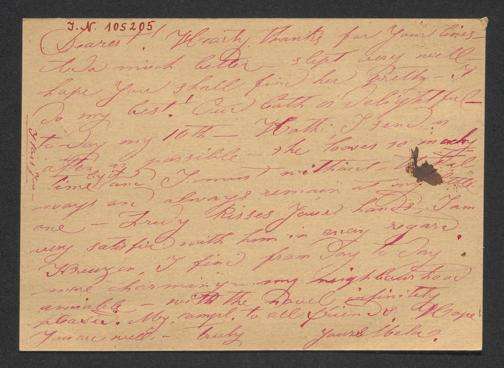 I.N. 105205
Dearest! Hearty thanks for Your lines
Ada much better slept very well
hope You shall find her pretty - I
do my best! Our bath is delightful -
to day my 10th - Kathi I send as
as possible - she looses so much
time and I must without
ways an always remain at my
one - Fredy kisses Your hands. I am
very satisfied with him in every regard.
I find from day to day
more charming - my neighbours have
amiable - with the travel infinitely
pleased. My compl. to all friends. I hope
You are well - truly Yours Hela.